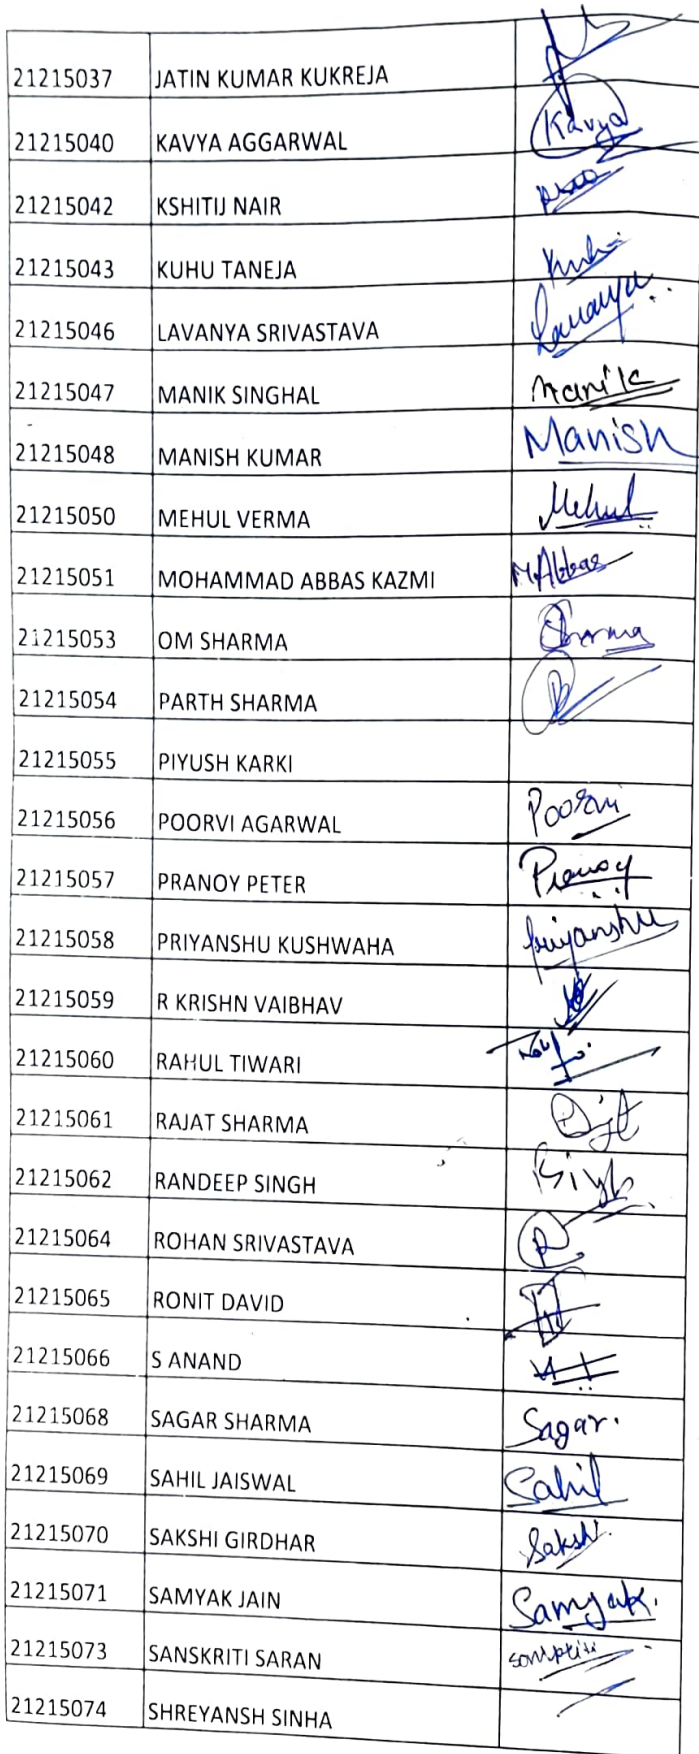 21215037 JATIN KUMAR KUKREJA
21215040 KAVYA AGGARWAL Kavya
21215042 KSHITIJ NAIR
21215043 KUHU TANEJA Kuhu
21215046 LAVANYA SRIVASTAVA Lavanya
21215047 MANIK SINGHAL Manik
21215048 MANISH KUMAR Manish
21215050 MEHUL VERMA Mehul
21215051 MOHAMMAD ABBAS KAZMI M.Abbas
21215053 OM SHARMA Sharma
21215054 PARTH SHARMA
21215055 PIYUSH KARKI
21215056 POORVI AGARWAL Poorvi
21215057 PRANOY PETER Pranoy
21215058 PRIYANSHU KUSHWAHA Priyanshu
21215059 R KRISHN VAIBHAV
21215060 RAHUL TIWARI
21215061 RAJAT SHARMA
21215062 RANDEEP SINGH
21215064 ROHAN SRIVASTAVA R
21215065 RONIT DAVID
21215066 S ANAND
21215068 SAGAR SHARMA Sagar.
21215069 SAHIL JAISWAL Sahil
21215070 SAKSHI GIRDHAR Sakshi
21215071 SAMYAK JAIN Samyak.
21215073 SANSKRITI SARAN
21215074 SHREYANSH SINHA